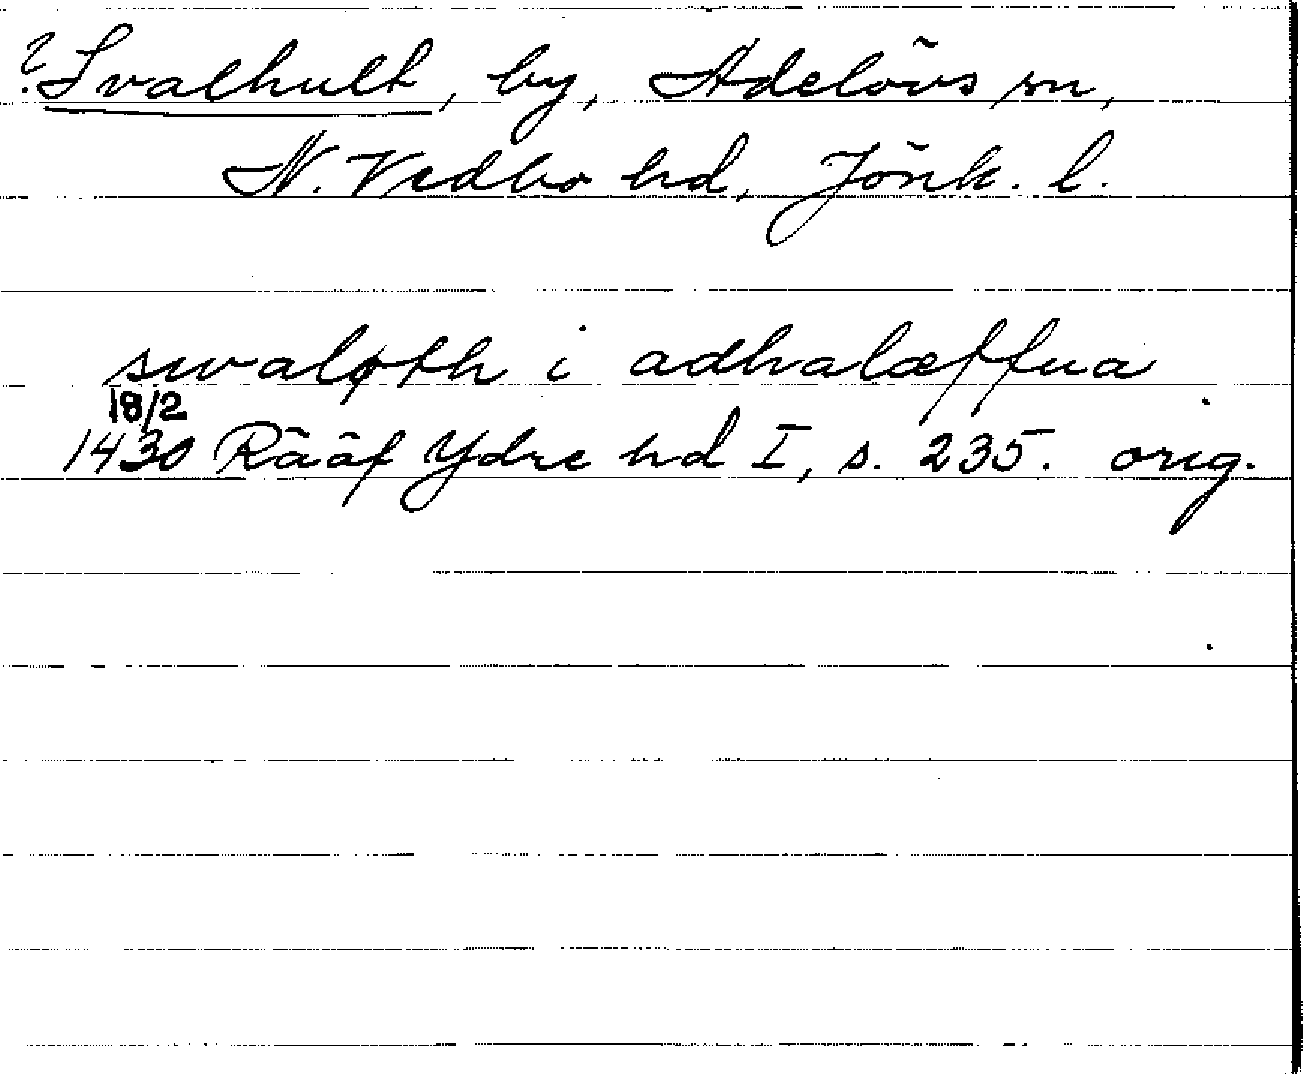 ? Svalhult, by, Adelövs sn,
N. Vedbo hd, Jönk. l.
swaløth i adhalæffua
18/2
1430 Rääf Ydre hd I, s. 235. orig.